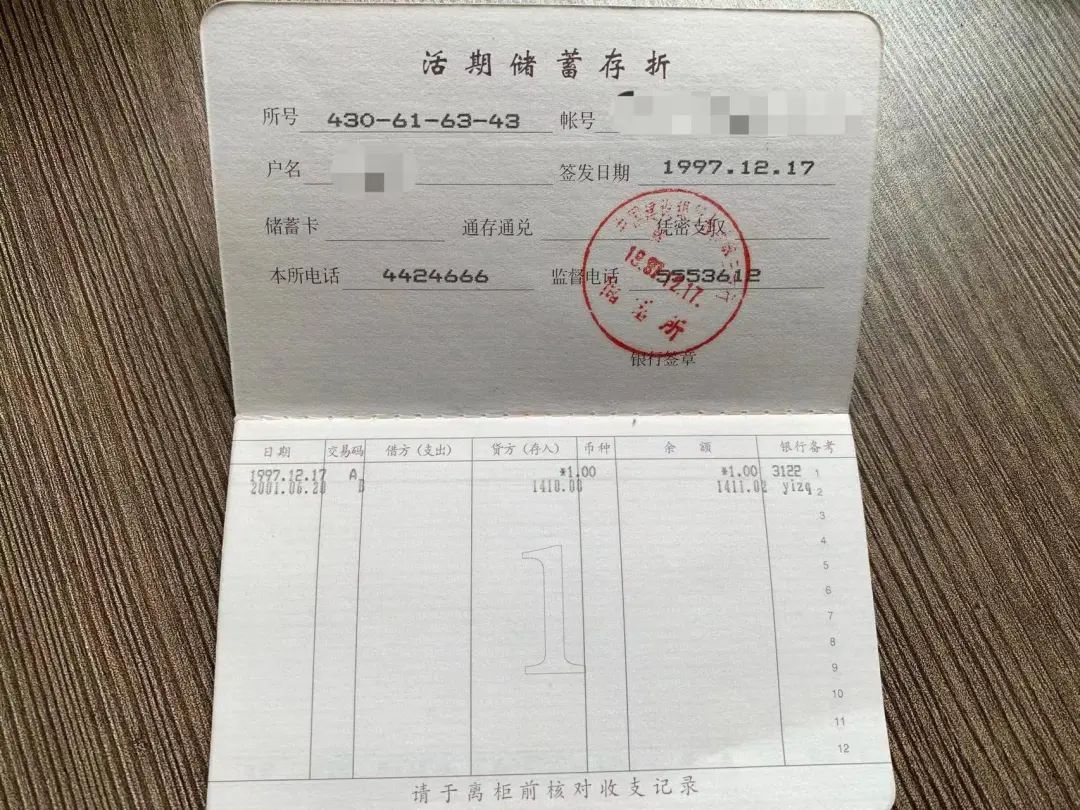 活期储蓄存折
所号 430-61-63-43 帐号
户名 签发日期 1997.12.17
储蓄卡 通存通兑 凭密支取
本所电话 4424666 监督电话 5553612
所
银行签章
日期 交易码 借方(支出) 贷方(存入) 币种 余额 银行备考
1997.12.17 A *1.00 *1.00 3122 1
2001.06.20 B 1410.00 1411.02 yizq 2
3
4
5
6
1
7
8
9
10
11
12
请于离柜前核对收支记录